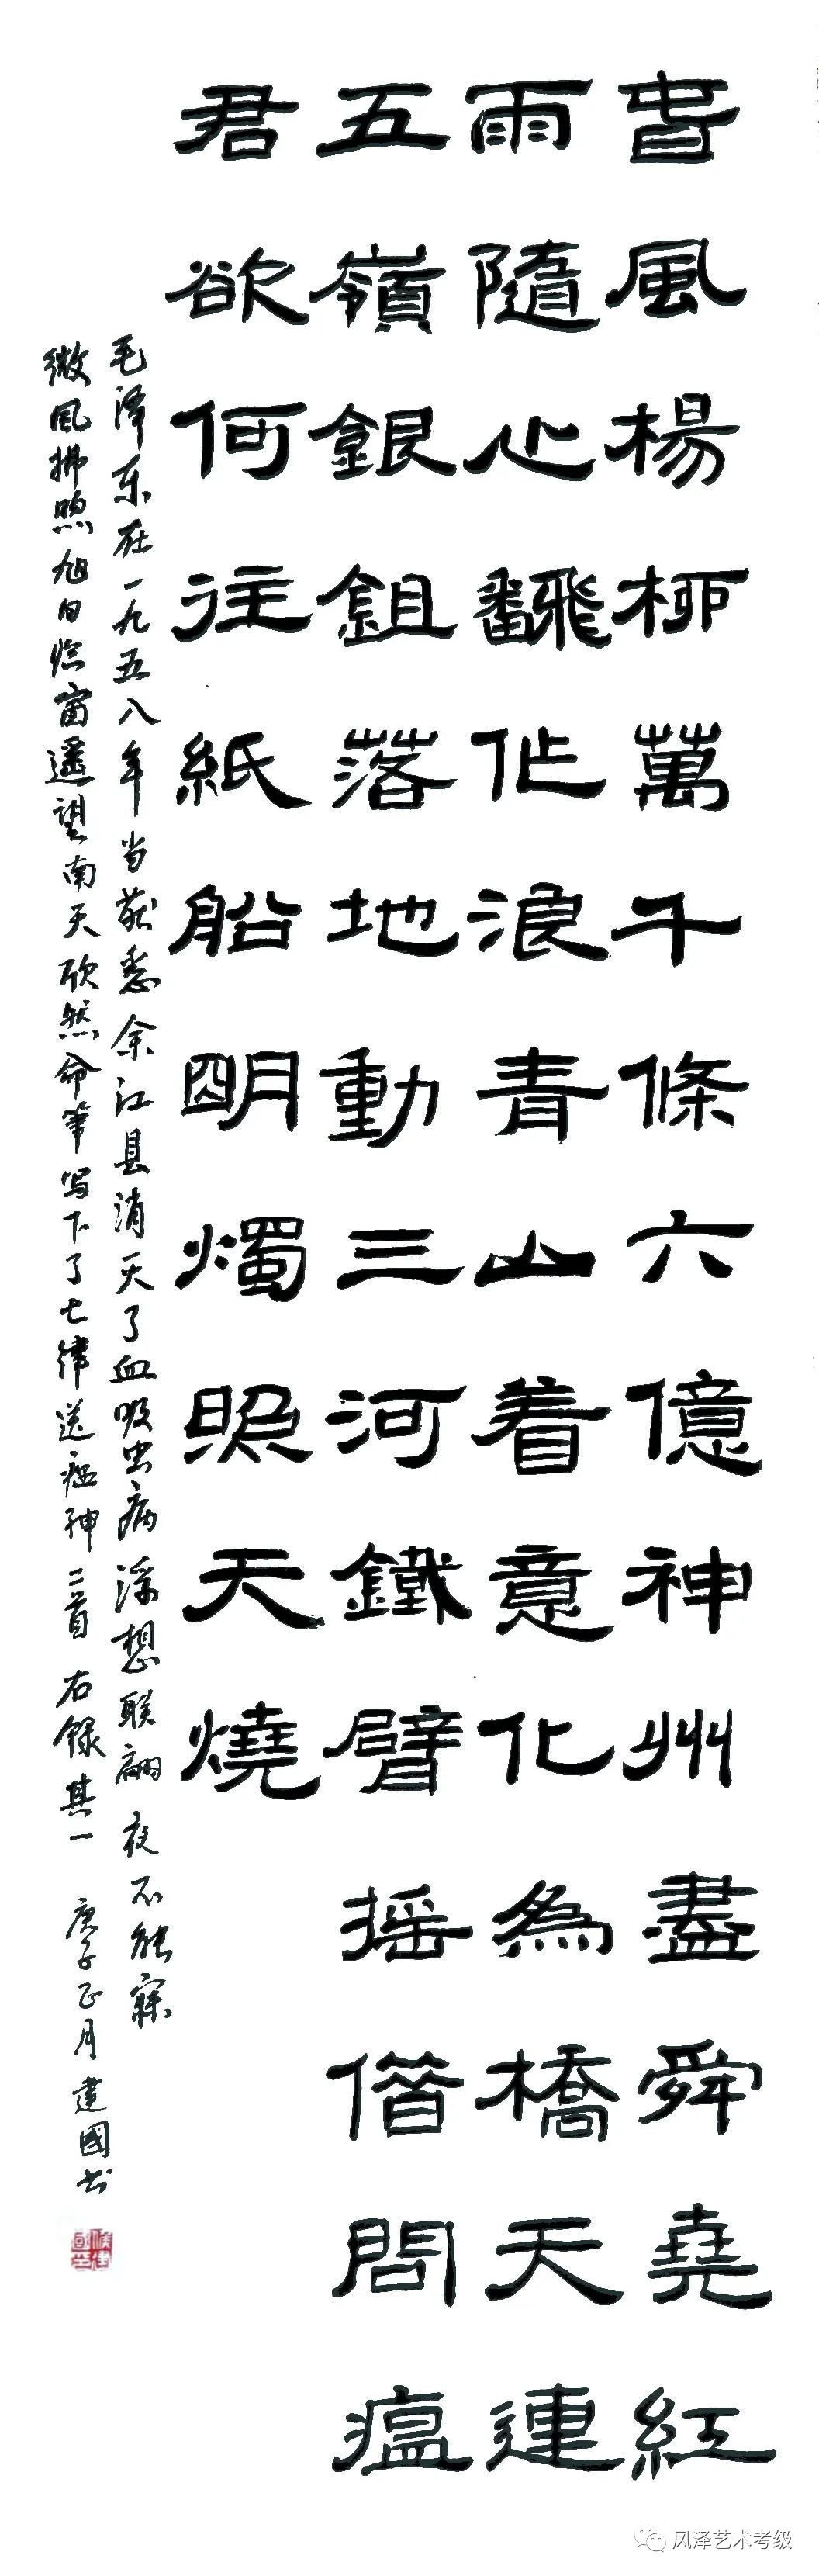 春風楊柳萬千條六億神州盡舜堯紅
雨隨心翻作浪青山着意化為橋天連
五嶺銀鉏落地動三河鐵臂摇借問瘟
君欲何往紙船明燭照天燒
毛泽东在一九五八年当获悉余江县消灭了血吸虫病浮想联翩夜不能寐
微风拂煦旭日临窗遥望南天欣然命笔写下了七律送瘟神二首右録其一 庚子正月建國书
风泽艺术考级